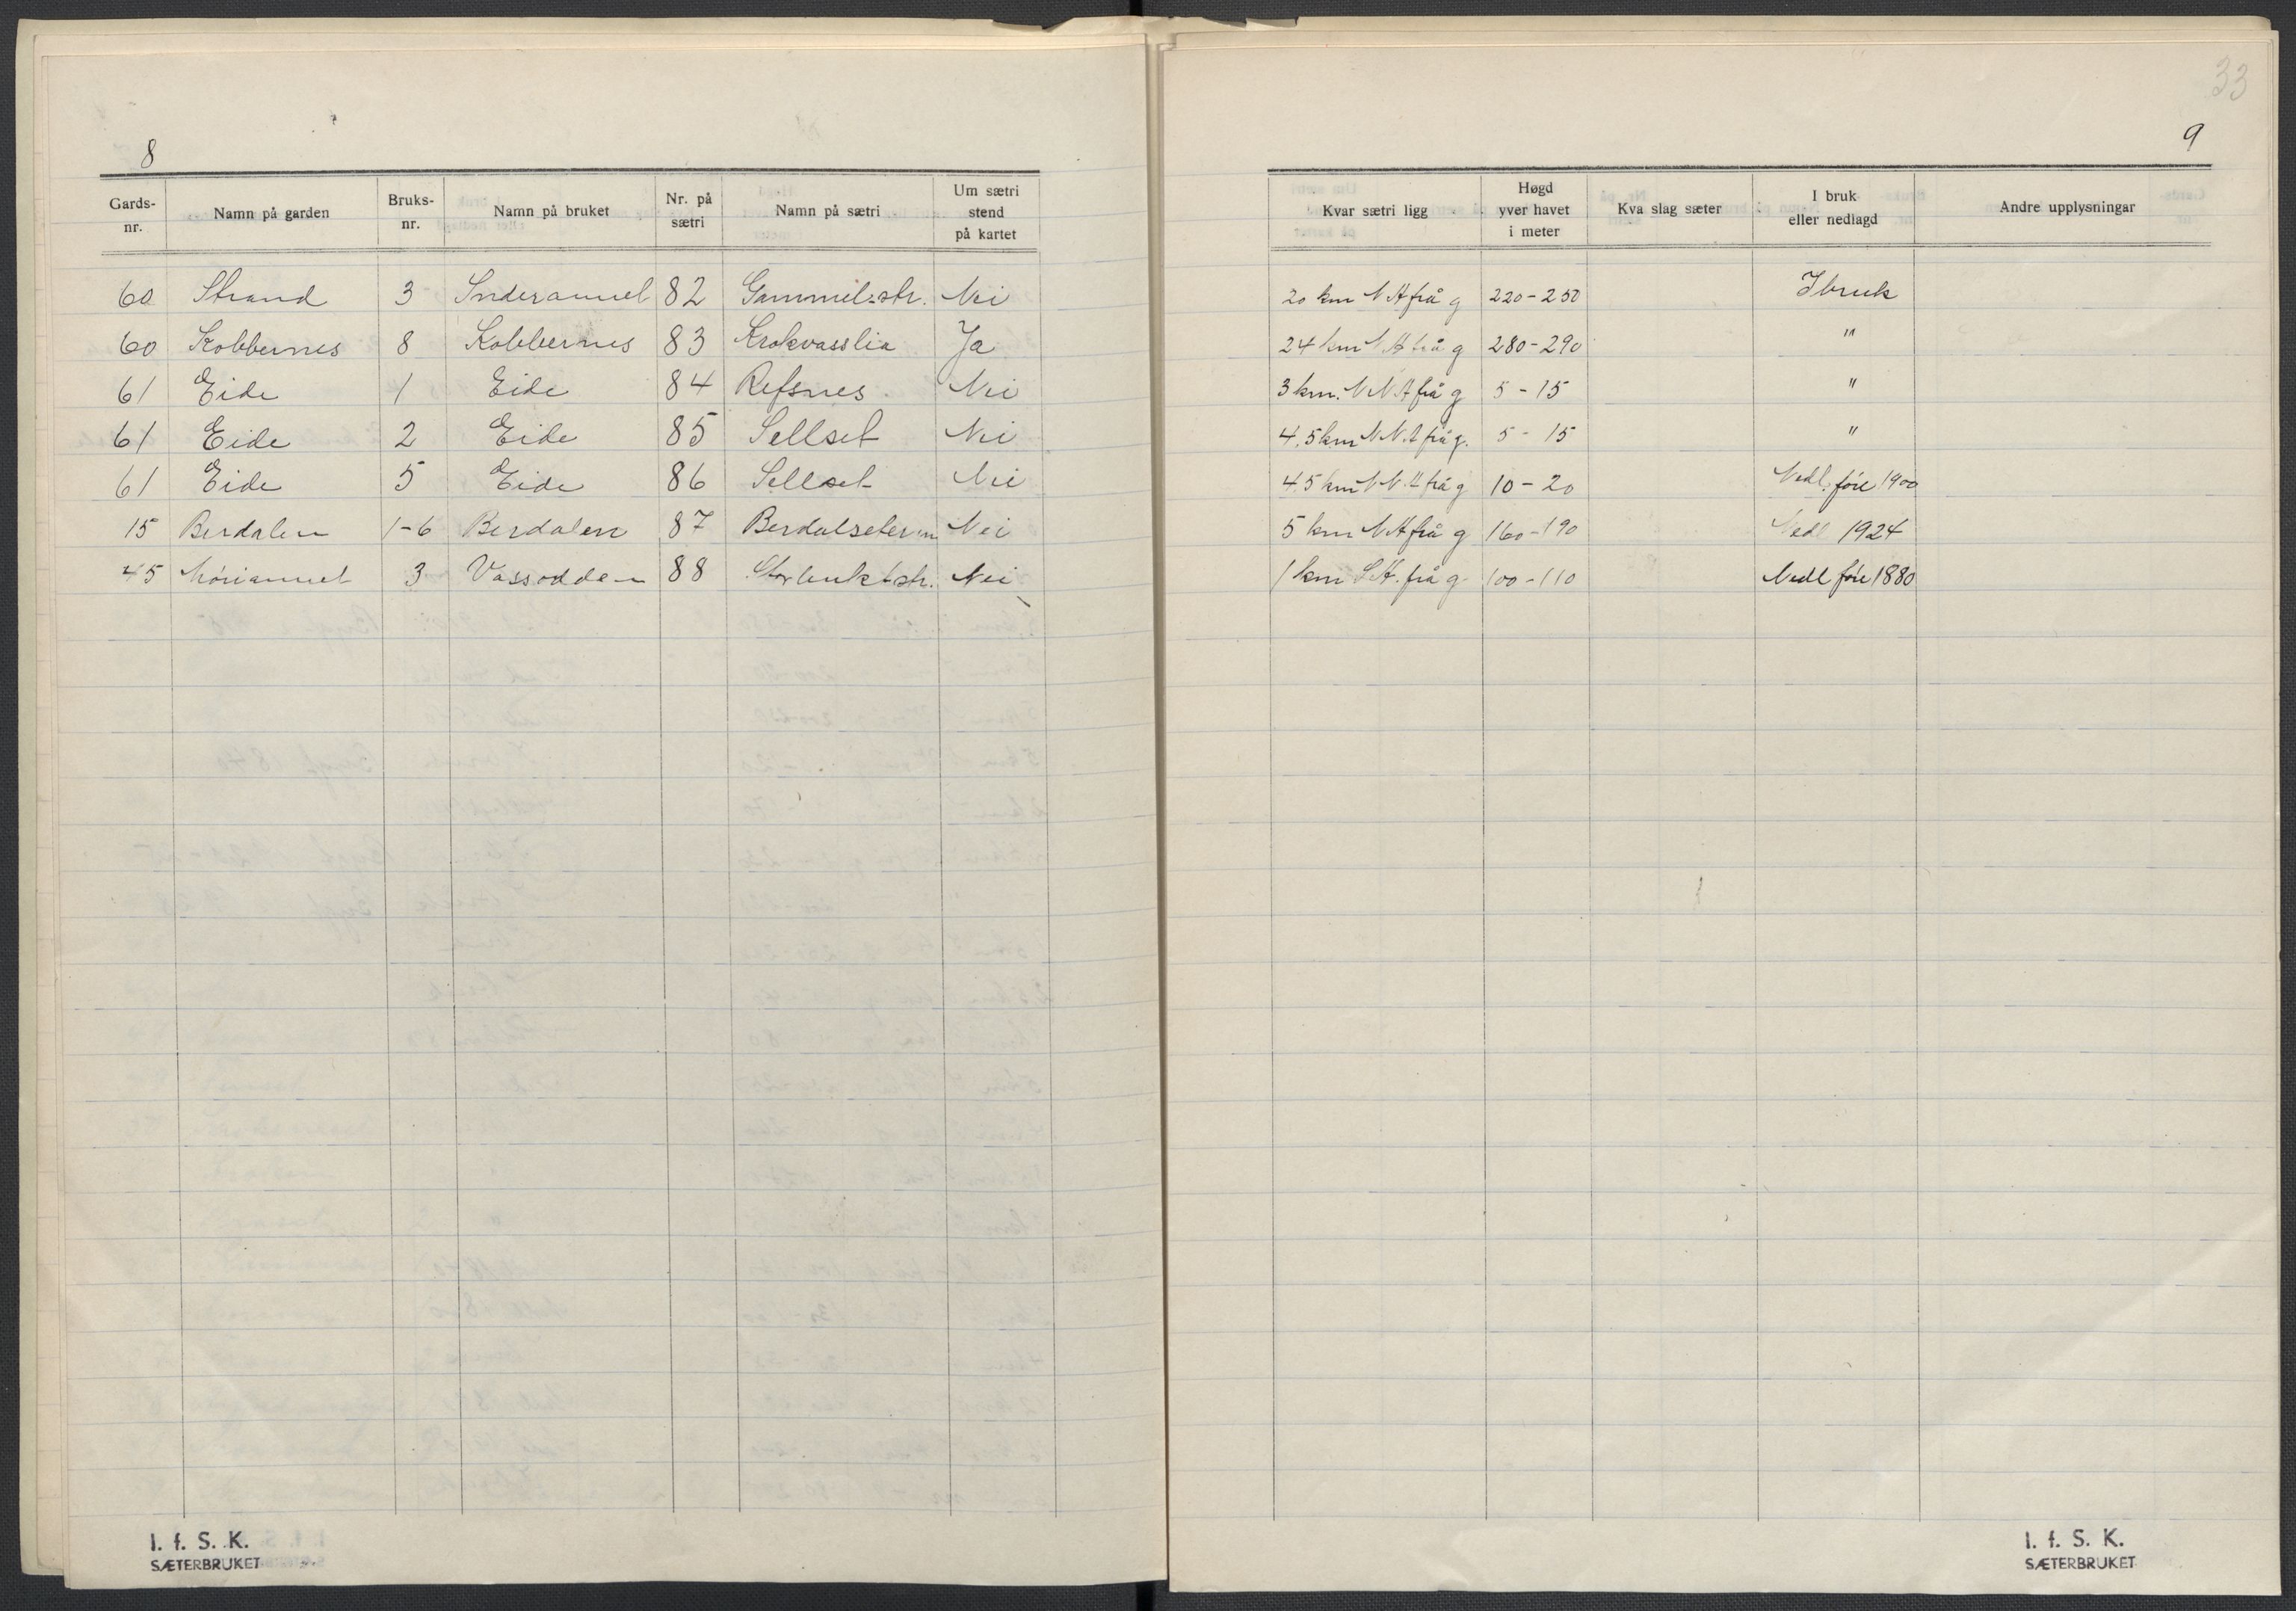 8
Gards-nr. Namn på garden Bruks-nr. Namn på bruket Nr. på sætri Namn på sætri Um sætri stend på kartet
60 Strand 3 82 Gammelstr. Nei
60 Kobbernes 8 Kobbernes 83 Krokvasslia Ja
61 Eide 1 Eide 84 Refsnes Nei
61 Eide 2 Eide 85 Sellset Nei
61 Eide 5 Eide 86 Sellset Nei
15 Berdalen 1-6 Berdalen 87 Berdalseteren Nei
45 3 Vassodden 88 Nei
I. f. S. K.
SÆTERBRUKET
33
9
Kvar sætri ligg Høgd yver havet i meter Kva slag sæter I bruk eller nedlagd Andre upplysningar
20 km N A frå g 220-250 I bruk
24 km N A frå g 280-290 "
3 km. N N A frå g 5-15 "
4,5 km N N. A frå g. 5-15 "
4,5 km N N. A frå g 10-20 Nedl. føre 1900
5 km N A frå g 160-190 Nedl 1924
1 km S A. frå g 100-110 Nedl føre 1880
I. f. S. K.
SÆTERBRUKET